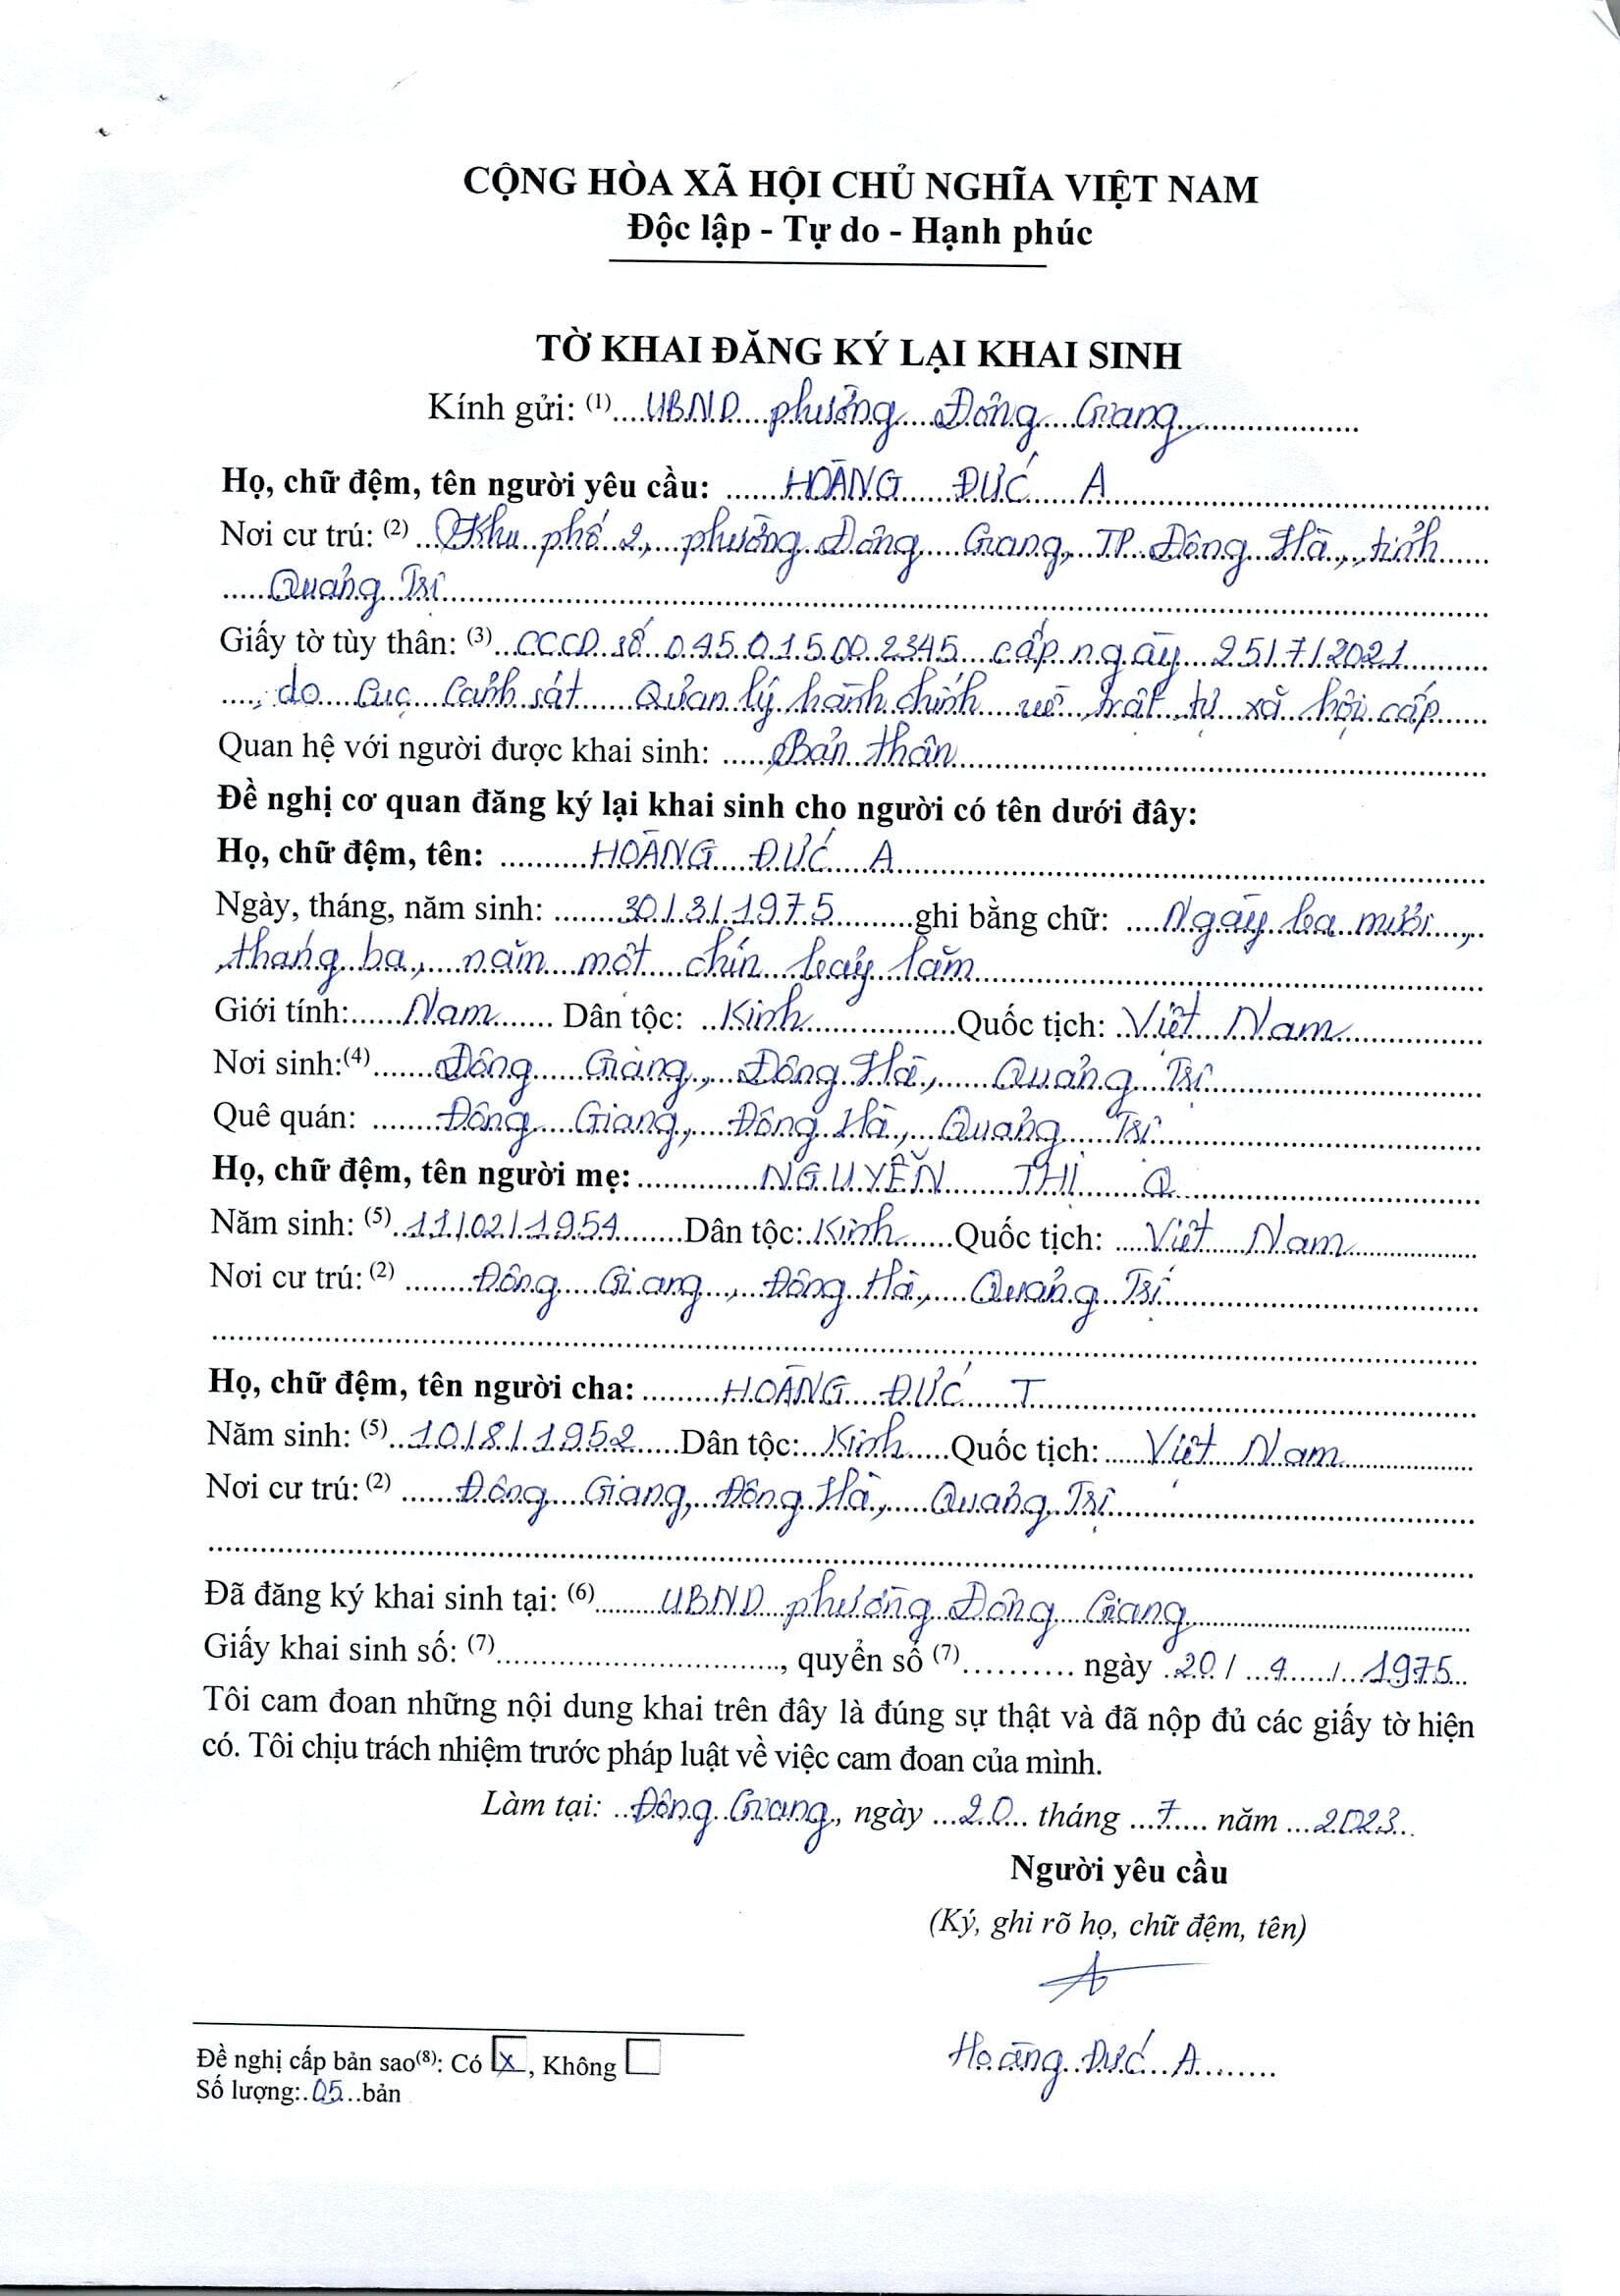 CỘNG HÒA XÃ HỘI CHỦ NGHĨA VIỆT NAM
Độc lập - Tự do - Hạnh phúc
TỜ KHAI ĐĂNG KÝ LẠI KHAI SINH
Kính gửi: (1)....UBND phường Đông Giang
Họ, chữ đệm, tên người yêu cầu: HOÀNG ĐỨC A
Nơi cư trú: (2) Khu phố 2, phường Đông Giang, TP. Đông Hà, tỉnh
Quảng Trị
Giấy tờ tùy thân: (3) CCCD số 045.015.00.2345 cấp ngày 25/7/2021
, do Cục Cảnh sát Quản lý hành chính về trật tự xã hội cấp
Quan hệ với người được khai sinh: Bản thân
Đề nghị cơ quan đăng ký lại khai sinh cho người có tên dưới đây:
Họ, chữ đệm, tên: HOÀNG ĐỨC A
Ngày, tháng, năm sinh: 30/3/1975 ghi bằng chữ: Ngày ba mươi,
tháng ba, năm một chín bảy lăm
Giới tính: Nam Dân tộc: Kinh Quốc tịch: Việt Nam
Nơi sinh:(4) Đông Giang, Đông Hà, Quảng Trị
Quê quán: Đông Giang, Đông Hà, Quảng Trị
Họ, chữ đệm, tên người mẹ: NGUYỄN THỊ Q
Năm sinh: (5) 11/02/1954 Dân tộc: Kinh Quốc tịch: Việt Nam
Nơi cư trú: (2) Đông Giang, Đông Hà, Quảng Trị
Họ, chữ đệm, tên người cha: HOÀNG ĐỨC T
Năm sinh: (5) 10/8/1952 Dân tộc: Kinh Quốc tịch: Việt Nam
Nơi cư trú: (2) Đông Giang, Đông Hà, Quảng Trị
Đã đăng ký khai sinh tại: (6) UBND phường Đông Giang
Giấy khai sinh số: (7)............, quyển số (7).......... ngày 20 / 4 / 1975
Tôi cam đoan những nội dung khai trên đây là đúng sự thật và đã nộp đủ các giấy tờ hiện
có. Tôi chịu trách nhiệm trước pháp luật về việc cam đoan của mình.
Làm tại: Đông Giang, ngày 20 tháng 7 năm 2023
Người yêu cầu
(Ký, ghi rõ họ, chữ đệm, tên)
A
Hoàng Đức A
Đề nghị cấp bản sao(8): Có x, Không
Số lượng: 05 bản